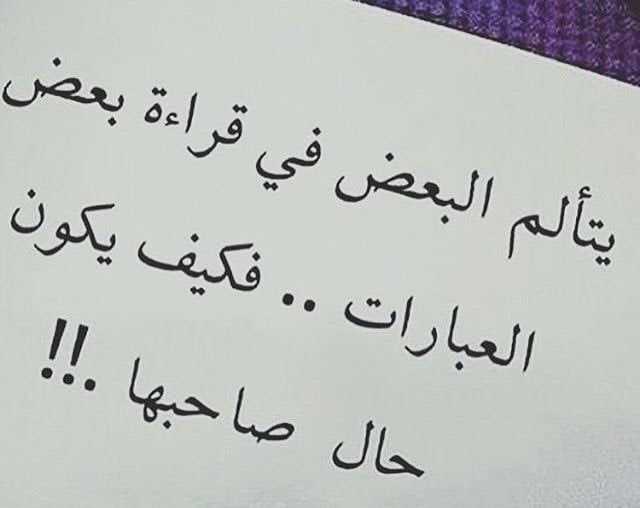 يتألم البعض في قراءة بعض
العبارات .. فكيف يكون
حال صاحبها .!!